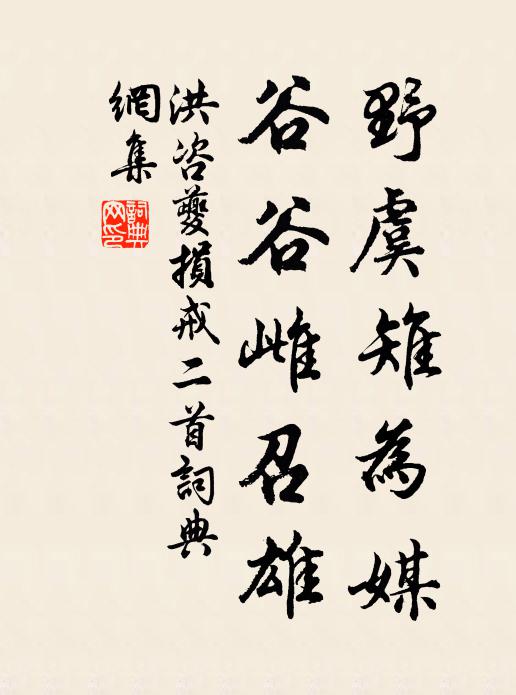 野虞雉為媒
谷谷雌召雄
洪咨夔損戒二首詞典
網集
詞典網印